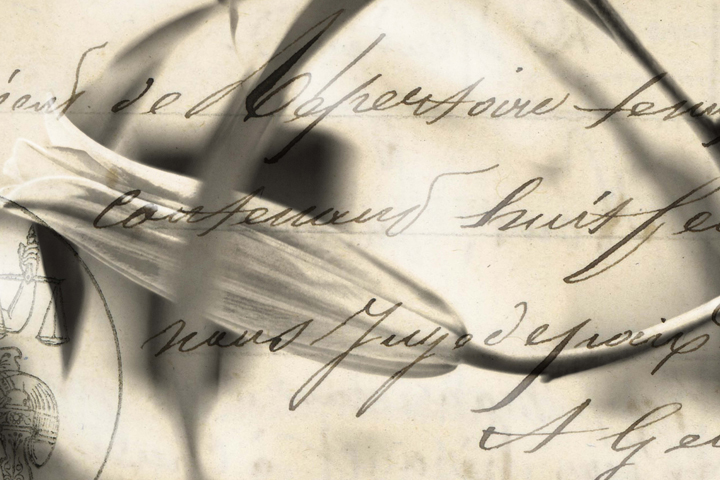 de Répertoire ten
contenant huit fe
nous Juge de paix
A Ge